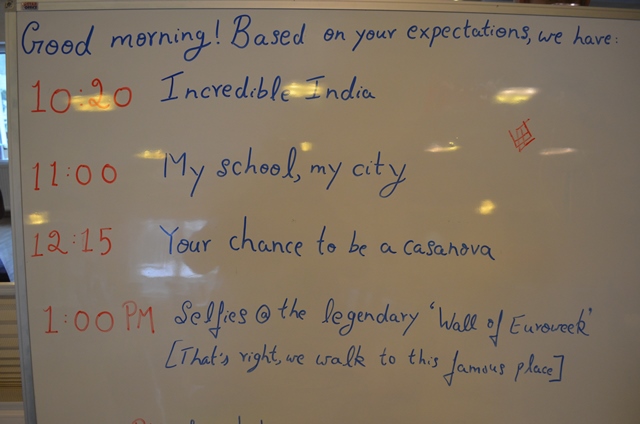 Good morning! Based on your expectations, we have:
10:20 Incredible India
11:00 My school, my city
12:15 Your chance to be a casanova
1:00 PM Selfies @ the legendary 'Wall of Euroweek'
[That's right, we walk to this famous place]